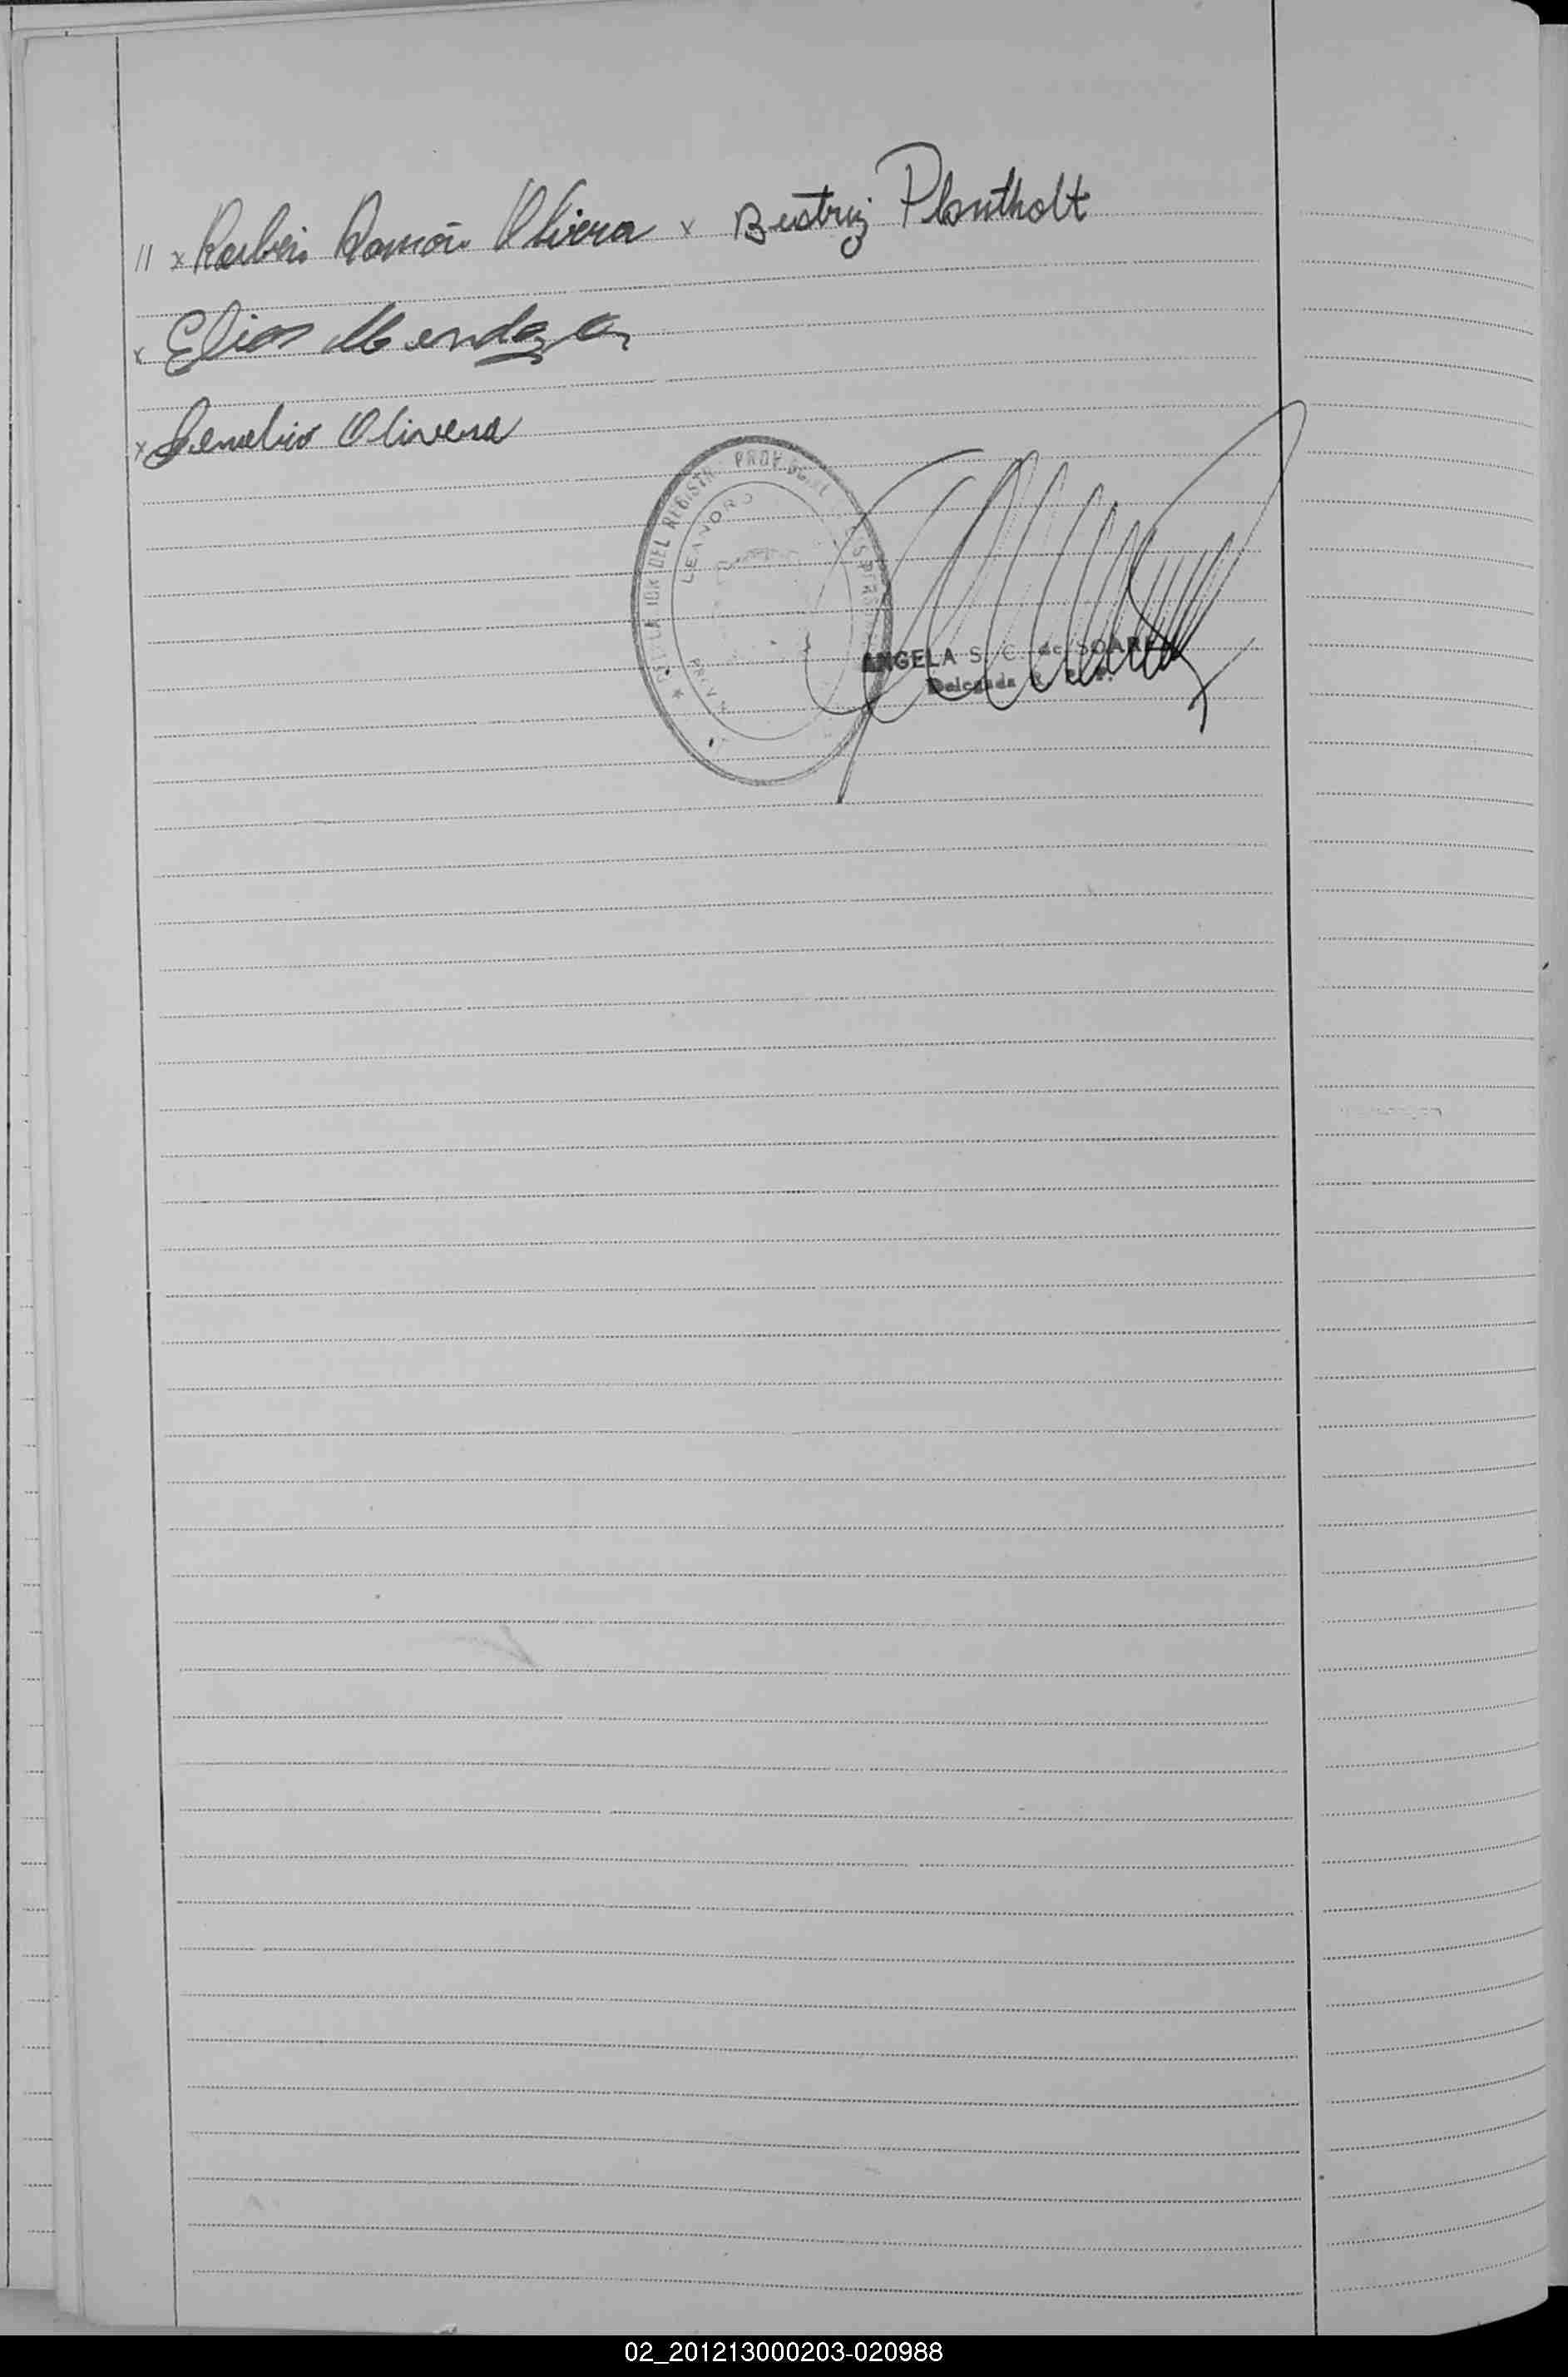 11 x Rubén Ramón Olivera x Beatriz Plantholt
x Elias Mendoza
x Olivera
DEL REGISTR PROV.
LEANDRO
ANGELA S. C. de SOARE
Delegada
02_201213000203-020988